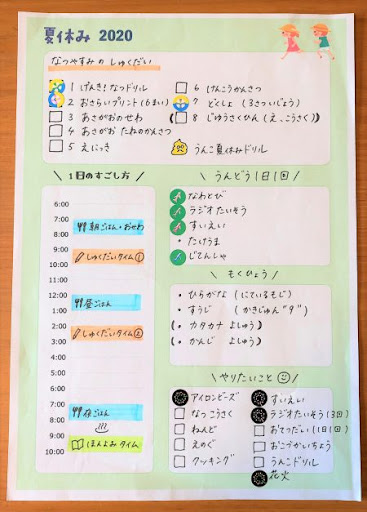 夏休み 2020
なつやすみのしゅくだい
1 げんき!なつドリル
2 おさらいプリント(6まい)
3 あさがおのせわ
4 あさがお たねのかんさつ
5 えにっき
6 けんこうかんさつ
7 どくしょ (3さついじょう)
(8 じゆうさくひん(え、こうさく))
うんこ夏休みドリル
1日のすごし方
6:00
7:00
8:00
朝ごはん・おせわ
9:00
しゅくだいタイム①
10:00
11:00
12:00
昼ごはん
1:00
2:00
しゅくだいタイム②
3:00
4:00
5:00
6:00
7:00
8:00
夜ごはん
9:00
ほんよみタイム
10:00
うんどう1日1回
なわとび
ラジオたいそう
すいえい
・たけうま
じてんしゃ
もくひょう
・ひらがな (にているもじ)
・すうじ (かきじゅん"8")
(・カタカナ よしゅう)
(・かんじ よしゅう)
やりたいこと
アイロンビーズ
なつこうさく
ねんど
えのぐ
クッキング
すいえい
ラジオたいそう(3回)
おてつだい(1日1回)
おこづかいちょう
うんこドリル
花火